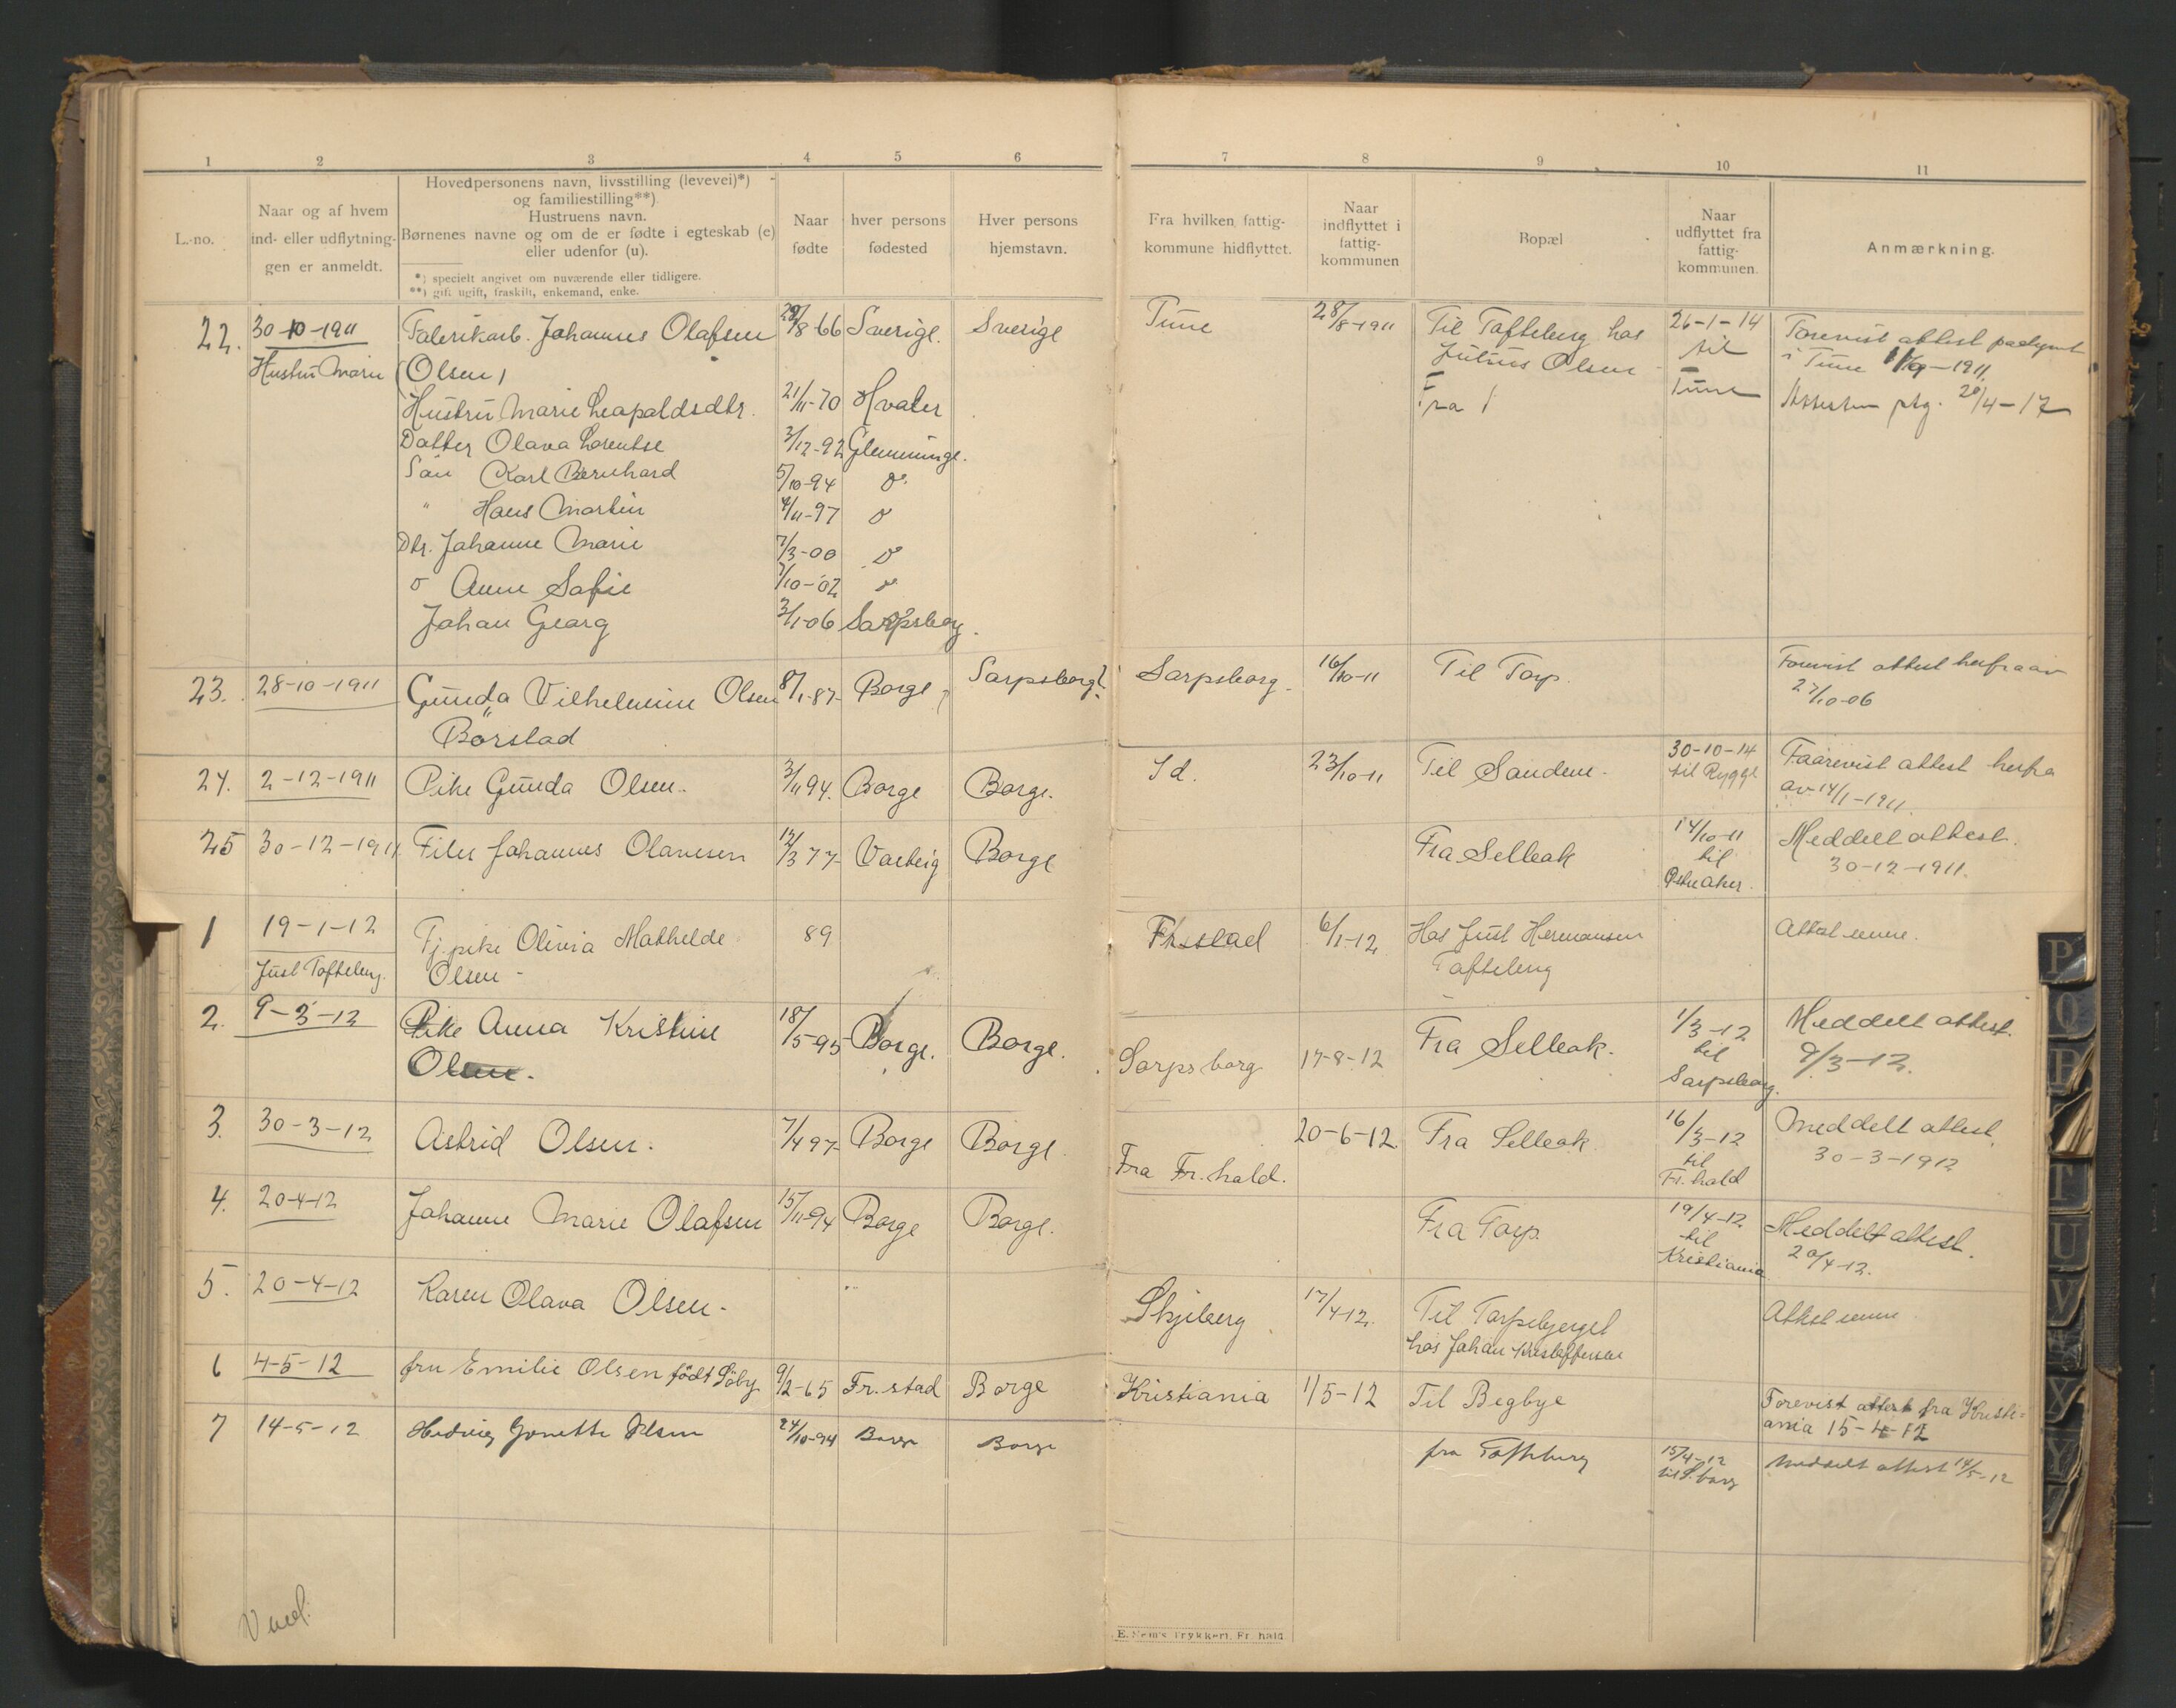 1 2 3 4 5 6
L.-no.
Naar og af hvem
ind- eller udflytnin-
gen er anmeldt.
Hovedpersonens navn, livsstilling (levevei)*)
og familiestilling**)
Hustruens navn.
Børnenes navne og om de er fødte i egteskab (e)
eller udenfor (u).
*) specielt angivet om nuværende eller tidligere.
**) gift ugift, fraskilt, enkemand, enke.
Naar
fødte
hver persons
fødested
Hver persons
hjemstavn.
22. 30-10-1911 Fabrikarb. Johannes Olafsen 28/8-66 Sverige. Sverige
Hustru Marie (Olsen)
Hustru Marie Leopoldsdtr. 21/11-70 Hvaler
Datter Olava Lorentse 2/12-92 Glemminge.
Sön Karl Bernhard 5/10-94 "
" Hans Martin 4/11-97 "
Dtr. Johanne Marie 7/3-00 "
" Anne Sofie 7/10-02 "
Johan Georg 3/1-06 Sarpsborg.
23. 28-10-1911 Gunda Vilhelmine Olsen 8/1-87- Borge Sarpsborg?
Borstad
24. 2-12-1911 Pike Gunda Olsen. 3/11 94. Borge Borge.
25 30-12-1911 Filer Johannes Olavesen 12/3 77- Varteig Borge
1 19-1-12 Tj.pike Olivia Mathelde 89
Just Tofteberg. Olsen-
2. 9-3-12 Pike Anna Kristine 18/5-95 Borge. Borge.
Olsen.
3. 30-3-12 Astrid Olsen. 7/4 97- Borge Borge
4. 20-4-12 Johanne Marie Olafsen 15/11-94 Borge Borge.
5. 20-4-12 Karen Olava Olsen-
6 4-5-12 fru Emilie Olsen født Löby 9/2-65 Fr.stad Borge
7 14-5-12 Hedvig Jonette Olsen 24/10-94 Borge Borge
Vend.
7 8 9 10 11
Fra hvilken fattig-
kommune hidflyttet.
Naar
indflyttet i
fattig-
kommunen
Bopæl
Naar
udflyttet fra
fattig-
kommunen.
Anmærkning.
Tune 28/8-1911 Til Tofteberg hos 26-1-14 Forevist attest
Julius Olsen til i Tune 11/9-1911.
Fra Tune Attesten ptg. 20/4-12
Sarpsborg 16/10-11 Til Torp. Forevist attest herfra av
27/10-06
Id. 23/10-11 Til Sandem. 30-10-14 Faarevist attest herfra
til Rygge av 14/1-1911.
Fra Selleak 14/10-11 Meddelt attest.
til 30-12-1911.
Østre Aker.
Fr.stad 6/1-12 Hos Just Hermansen
Tofteberg
Sarpsborg 17-8-12 Fra Selleak. 1/3-12 Meddelt attest.
til 9/3-12.
Sarpsborg.
20-6-12 Fra Selleak 16/3-12 Meddelt attest.
Fra Fr.hald. til 30-3-1912
Fr.hald
Fra Torp. 19/4-12 Meddelt attest.
til 20/4-12.
Kristiania
Skjeberg 17/4-12. Til Torpebjerget
hos Johan Kristoffersen
Kristiania 1/5-12 Til Begbye Forevist attest fra Kristi-
ania 15-4-12
fra Tofteberg 15/4-12 meddelt attest 14/5-12
til S.borg
E. Sem's Trykkeri, Fr.hald
P
Q
R
T
U
V
X
Y